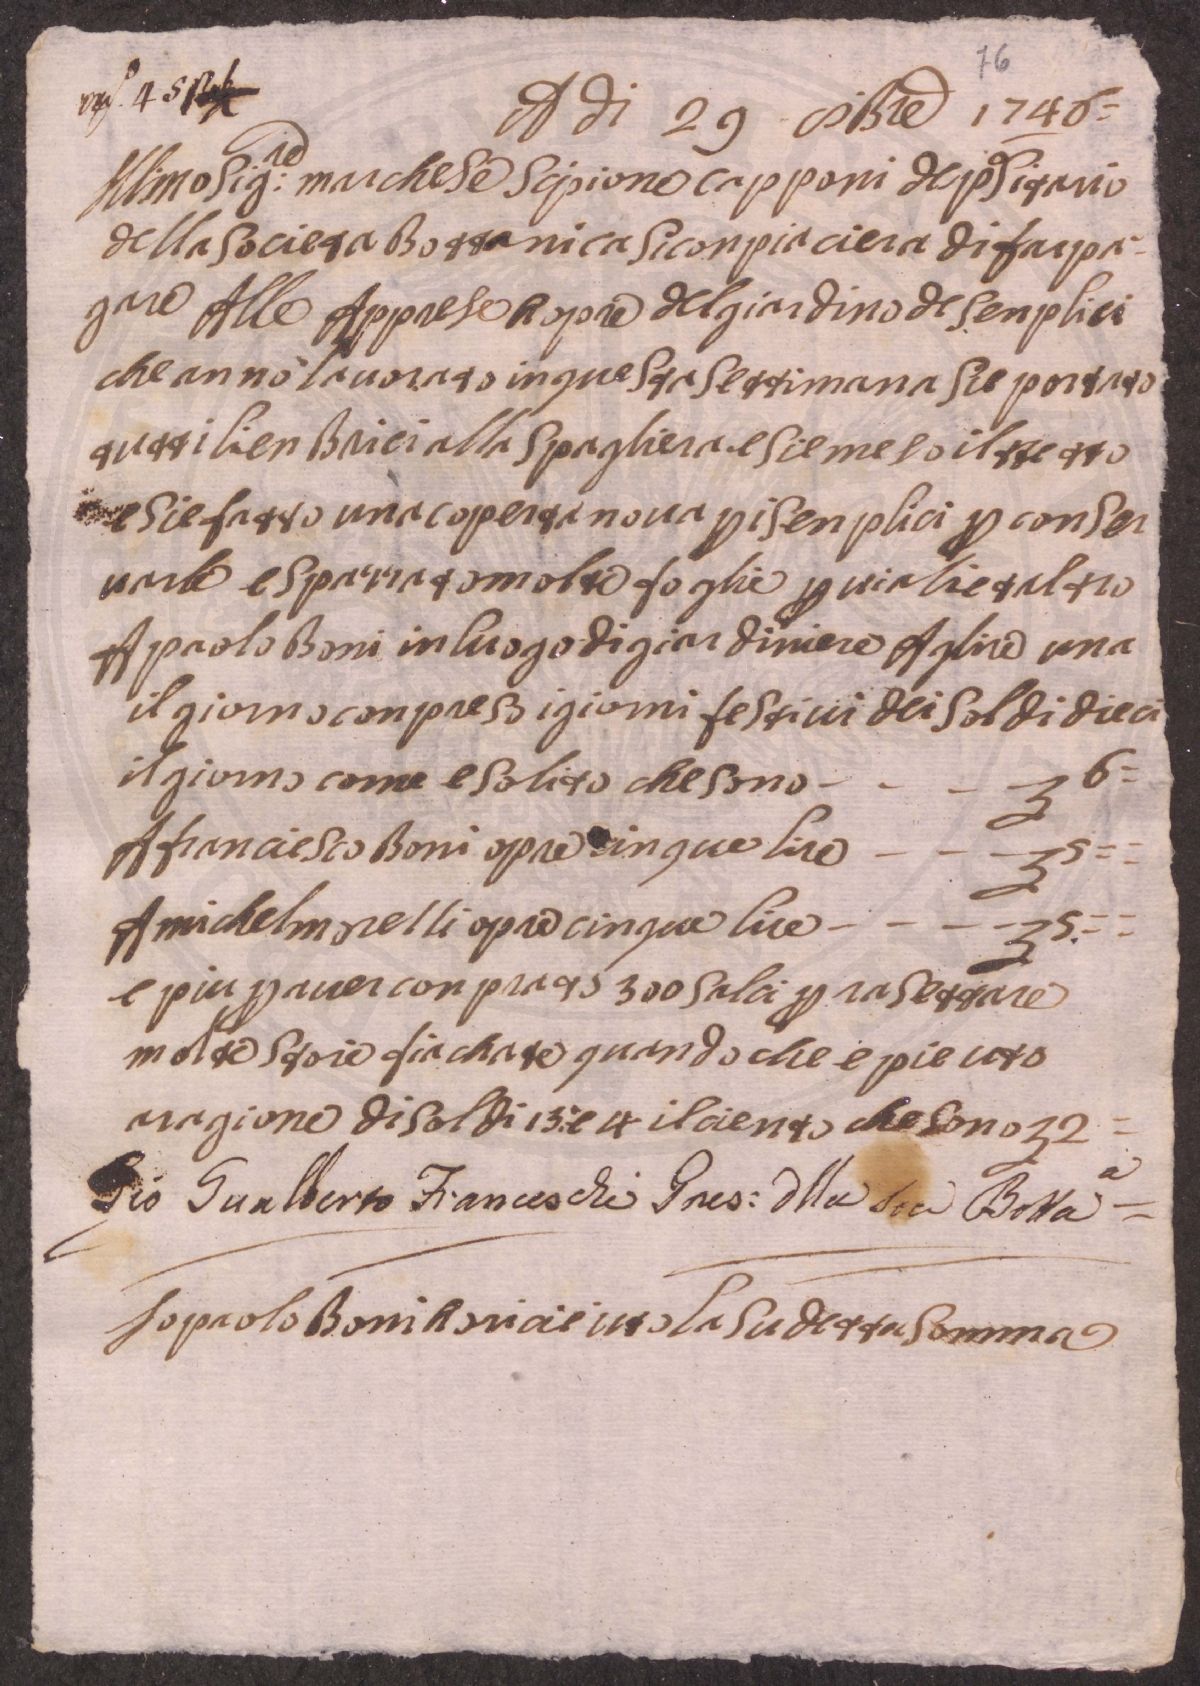 76
A di 29 ottobre 1746=
Illmo Sig:re marchese Scipione capponi depositario
della Societa Bottanica Si conpiaciera di far pa-
gare Alle Apprese hopre del giardino de Senplici
che anno lauorato in questa Settimana Sie portato
tutti li en Brici alla Spagliera e Sie meso il tetto
e Sie fatto una coperta noua p i Senplici p conSer
uarli e Sparrato molte foglie p uiali et altro
A paolo Boni in luogo di giardiniere A glire una
il giorno conpreso i giorni festiui dei Soldi dieci
il giorno come e Solito che Sono - - - - 6=
A franciesco Boni opre cinque lire - - - 5==
A michel morelli opre cinque lire - - - - 5==
e piu p auer conprato 300 Salci p raSettare
molte Stoie fiachate quando che e pieuto
aragione di Soldi 13: e 4 il ciento che Sono 2=
Gio Gualberto Franceschi Pres: dlla Soca Botta=
Io paolo Boni ho riceieuto la Sudetta Somma